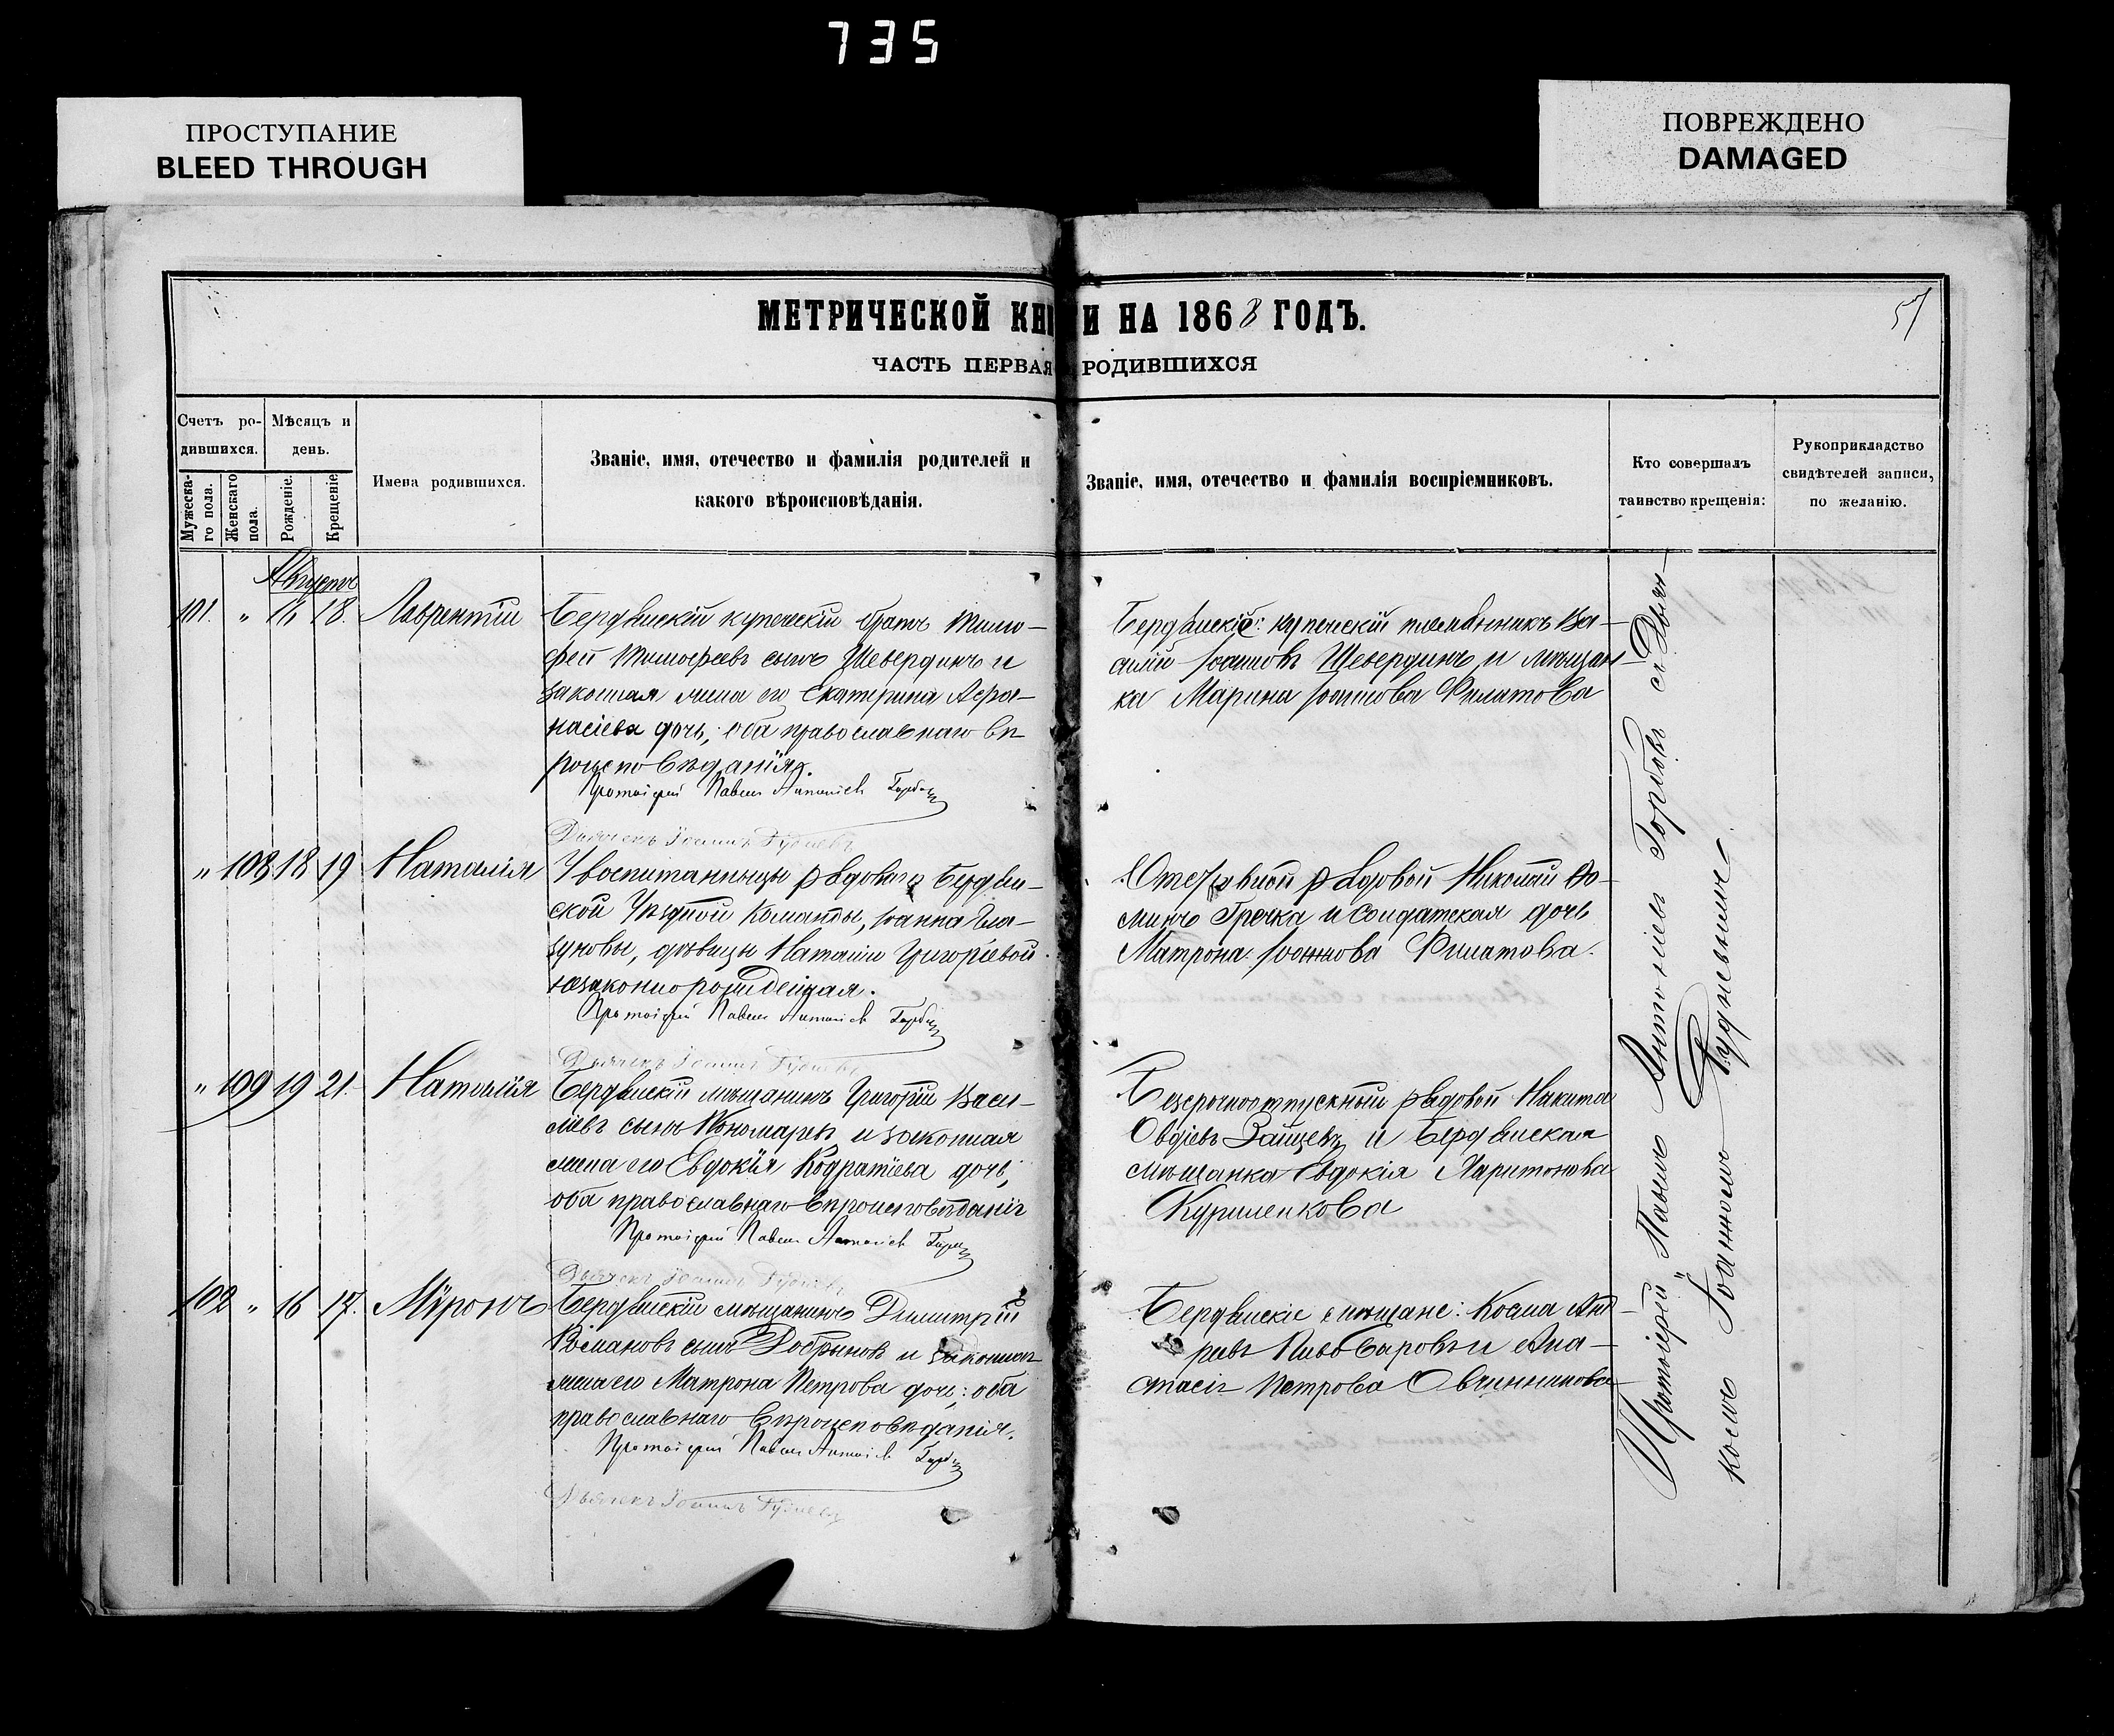 735
ПРОСТУПАНИЕ
BLEED THROUGH
ПОВРЕЖДЕНО
DAMAGED
МЕТРИЧЕСКОЙ КНИ И НА 1868 ГОДЪ.
57
ЧАСТЬ ПЕРВАЯ РОДИВШИХСЯ
Счетъ ро-
дившихся.
Мужеска-
го пола.
Женскаго
пола.
Мѣсяцъ и
день.
Рожденіе.
Крещеніе
Имена родившихся.
Званіе, имя, отечество и фамилія родителей и
какого вѣроисповѣданія.
Званіе, имя, отечество и фамилія воспріемниковъ.
Кто совершалъ
таинство крещенія:
Рукоприкладство
свидѣтелей записи,
по желанію.
Августъ
101. " 16 18. Лаврентій
Бердянскій купеческій братъ Тимо-
фей Тимофеевъ сынъ Шевердинъ и
законная жена его Екатерина Афа-
насіева дочь; оба православнаго вѣ
роисповѣданія.
Протоіерей Павелъ Антоніевъ
Дьячекъ Іоаннъ
Бердянскіе: купеческій племянникъ Ва-
силій Іоанновъ Шевердинъ и мѣщан-
ка Марина Іоаннова Филатова
" 108 18 19 Наталія
У воспитанницы рядоваго Бердян-
ской Уѣздной Команды, Іоанна Гла-
зуновы, дѣвицы Наталіи Григоріевой
незаконнорожденная.
Протоіерей Павелъ Антоніевъ
Дьячекъ Іоаннъ
рядовой Николай Фо-
минъ Гречка и солдатская дочь
Матрона Іоаннова Филатова.
" 109 19 21. Наталія
Бердянскій мѣщанинъ Григорій Васи-
ліевъ сынъ Пономаревъ и законная
жена его Евдокія Кодратіева дочь;
оба православнаго вѣроисповѣданія
Протоіерей Павелъ Антоніевъ
Дьячекъ Іоаннъ
Безсрочноотпускный рядовой Никита
Овдіевъ Зайцевъ и Бердянская
мѣщанка Евдокія Харитонова
Куриленкова
102 " 16 17. Мѵронъ
Бердянскій мѣщанинъ Димитрій
Романовъ сынъ Добрыновъ и законная
жена его Матрона Петрова дочь; оба
православнаго вѣроисповѣданія.
Протоіерей Павелъ Антоніевъ
Дьячекъ Іоаннъ
Бердянскіе мѣщане: Косма Анд-
реевъ Пивоваровъ и Ана-
стасія Петрова Овчинникова
Протоіерей Павелъ Антоніевъ Горбовъ съ Дьяч-
комъ Іоанномъ